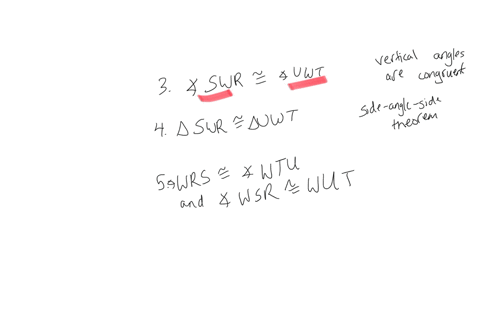 3. ∡ SWR ≅ ∡ UWT
vertical angles
are congruent
4. △ SWR ≅ △UWT
side-angle-side
theorem
5. ∡WRS ≅ ∡ WTU
and ∡ WSR ≅ WUT